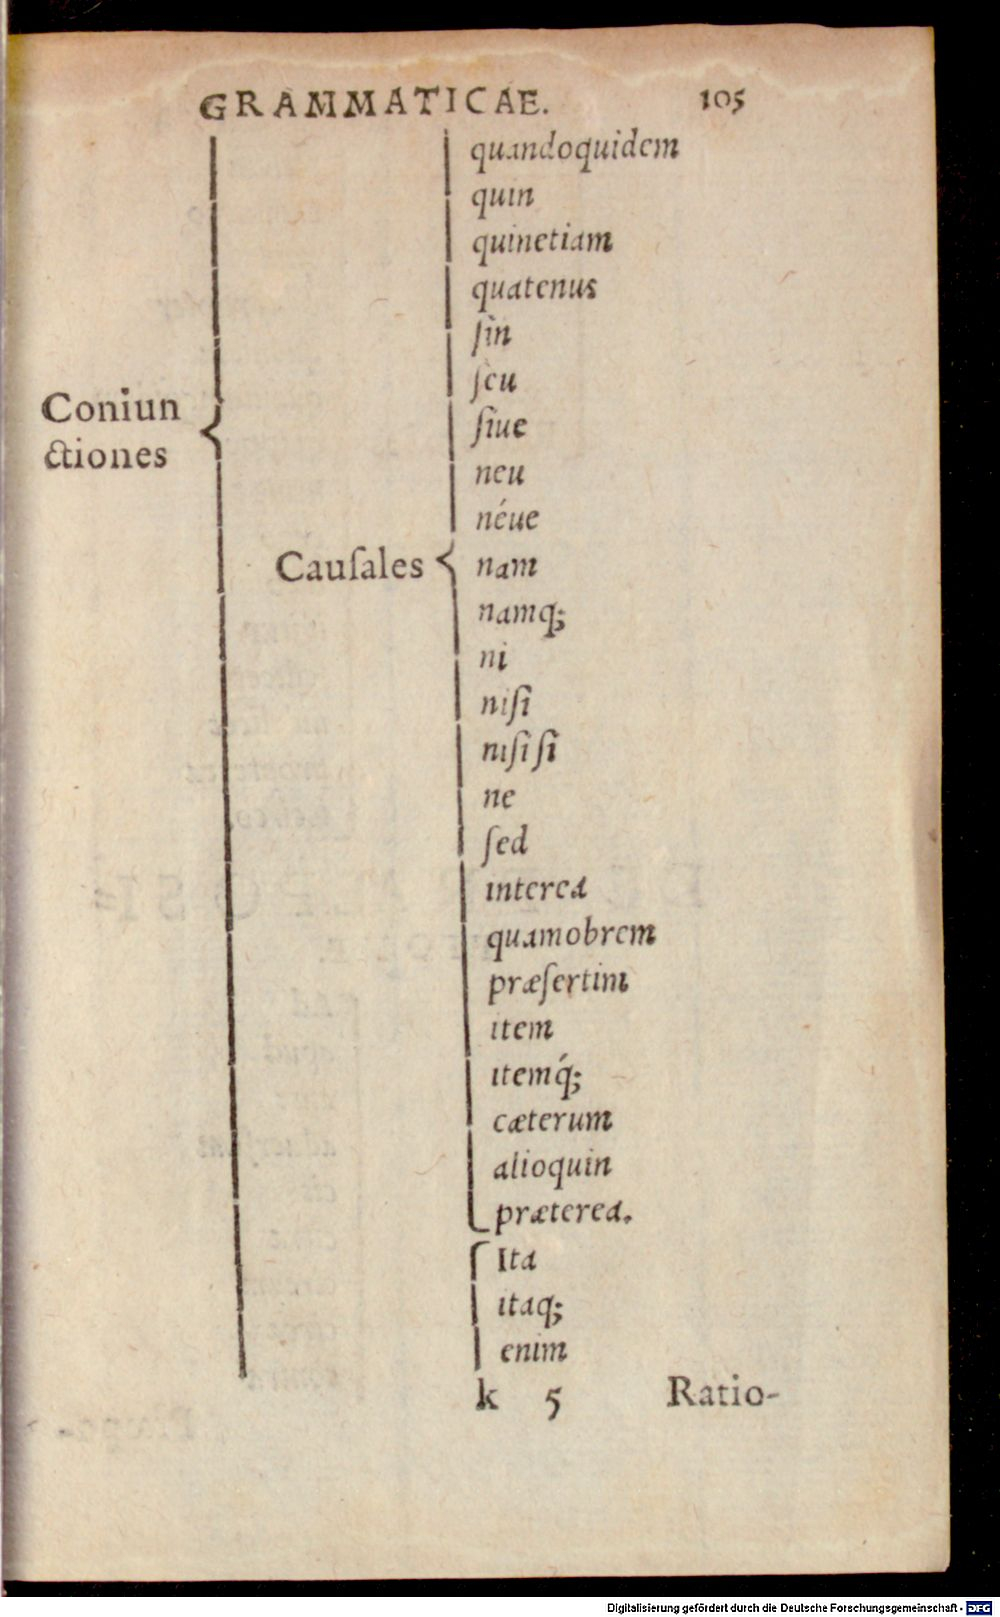 GRAMMATICAE. 105
quandoquidem
quin
quinetiam
quatenus
ſin
ſeu
Coniun
ſiue
ctiones
neu
néue
Cauſales
nam
namq;
ni
niſi
niſi ſi
ne
ſed
interea
quamobrem
præſertim
item
itemq́;
cæterum
alioquin
præterea.
Ita
itaq;
enim
k 5 Ratio-
Digitalisierung gefördert durch die Deutsche Forschungsgemeinschaft - DFG